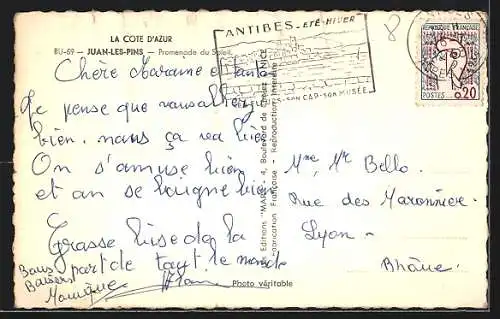 LA COTE D'AZUR
BU-69 - JUAN-LES-PINS - Promenade du Soleil
Chère Maranne et
Je pense que vous
bien. nous ça va bien
On s'amuse bien
et an se baigne bien
Grasse bise da la
part de tout le monde
Bons
Baisers
Monique Alain
ANTIBES - ÉTÉ-HIVER
SON CAP - SON MUSÉE
8
RÉPUBLIQUE FRANÇAISE
POSTES 0,20
Editions "MAR", 4, Boulevard de
Fabrication Française - Reproduction Interdite
Mme, Mr Bello.
Rue des Maronniers
Lyon.
Rhône.
Photo véritable